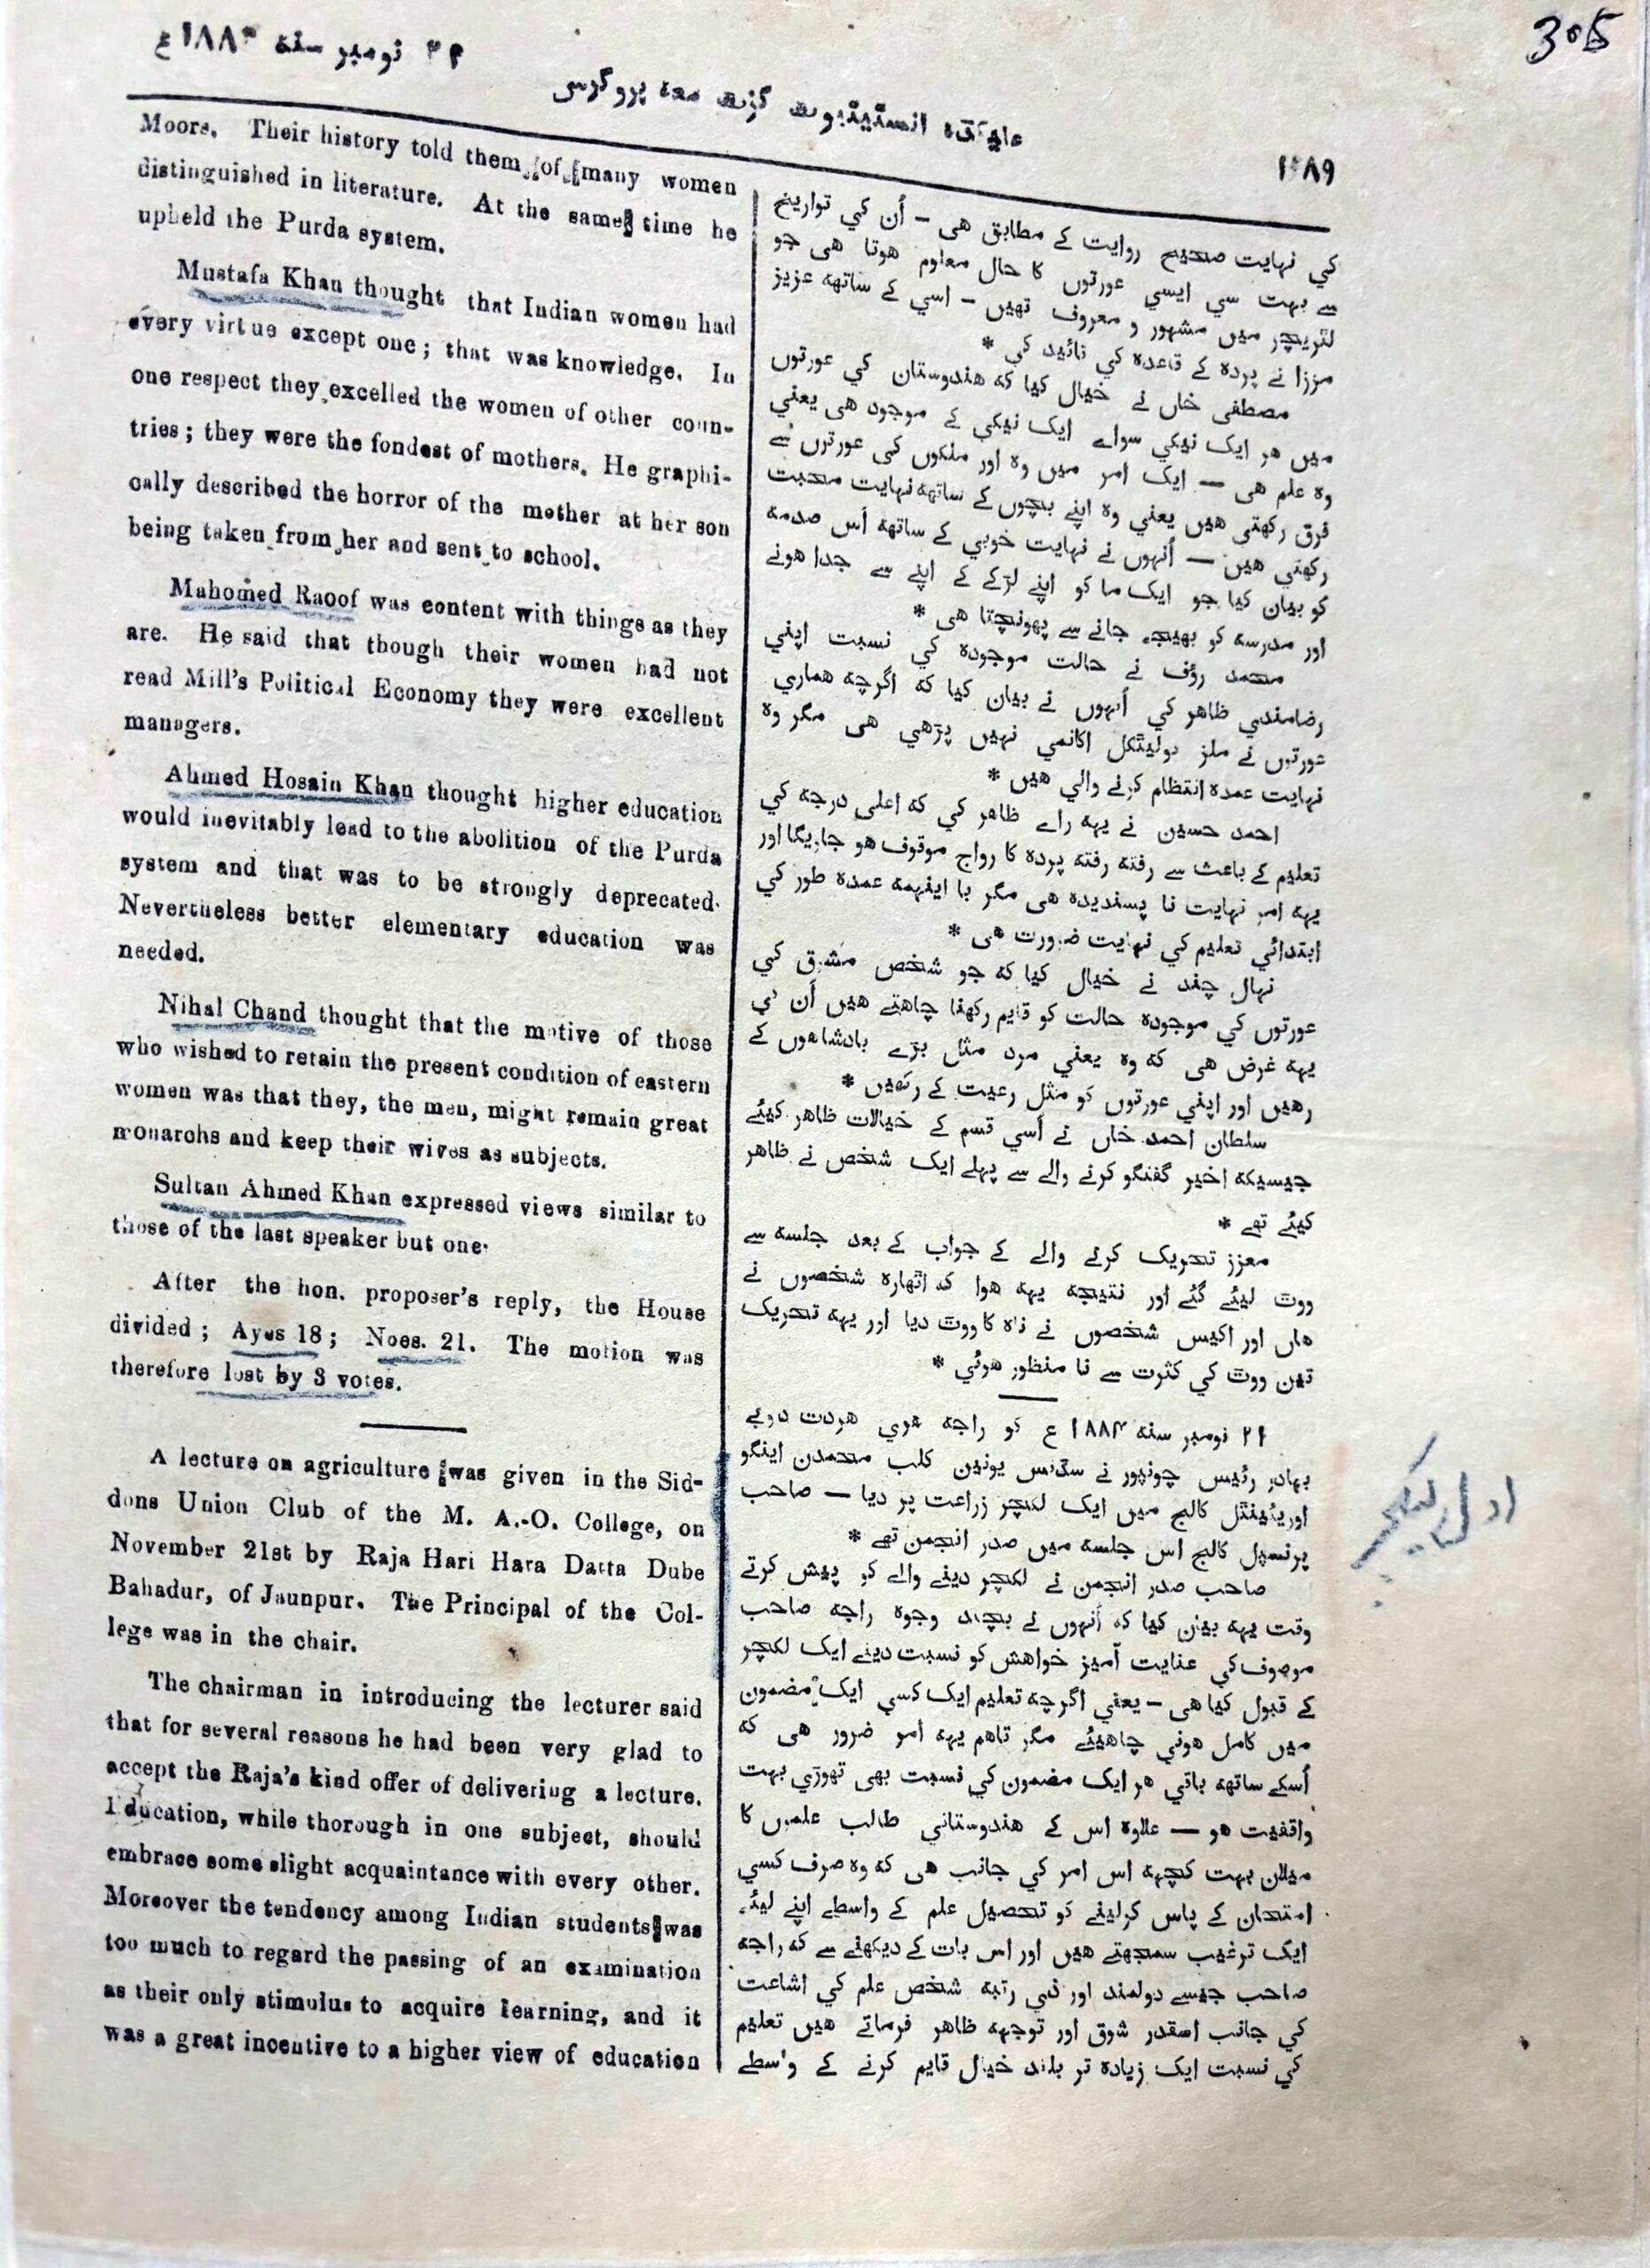 305
نومبر سنه ۱۸۸۴ع
علیگڈه انسٹیٹیوٹ گزٹ معه پروگرس
Moors. Their history told them of many women
distinguished in literature. At the same time he
upheld the Purda system.
Mustafa Khan thought that Indian women had
every virtue except one; that was knowledge. In
one respect they excelled the women of other coun-
tries; they were the fondest of mothers. He graphi-
cally described the horror of the mother at her son
being taken from her and sent to school.
Mahomed Raoof was content with things as they
are. He said that though their women had not
read Mill's Political Economy they were excellent
managers.
Ahmed Hosain Khan thought higher education
would inevitably lead to the abolition of the Purda
system and that was to be strongly deprecated.
Nevertheless better elementary education was
needed.
Nihal Chand thought that the motive of those
who wished to retain the present condition of eastern
women was that they, the men, might remain great
monarchs and keep their wives as subjects.
Sultan Ahmed Khan expressed views similar to
those of the last speaker but one.
After the hon. proposer's reply, the House
divided; Ayes 18; Noes. 21. The motion was
therefore lost by 3 votes.
A lecture on agriculture was given in the Sid-
dons Union Club of the M. A.-O. College, on
November 21st by Raja Hari Hara Datta Dube
Bahadur, of Jaunpur. The Principal of the Col-
lege was in the chair.
The chairman in introducing the lecturer said
that for several reasons he had been very glad to
accept the Raja's kind offer of delivering a lecture.
Education, while thorough in one subject, should
embrace some slight acquaintance with every other.
Moreover the tendency among Indian students was
too much to regard the passing of an examination
as their only stimulus to acquire learning, and it
was a great incentive to a higher view of education
کي نہایت صحیح روایت کے مطابق هی – اُن کي تواریخ
سے بہت سي ایسي عورتوں کا حال معلوم هوتا هی جو
لٹریچر میں مشہور و معروف تھیں – اسي کے ساتھه عزیز
مرزا نے پرده کے قاعده کي تائید کي *
مصطفی خاں نے خیال کیا که هندوستان کي عورتوں
میں هر ایک نیکي سواے ایک نیکي کے موجود هی یعني
وه علم هی — ایک امر میں وه اور ملکوں کی عورتوں سے
فرق رکھتی هیں یعني وه اپنے بچوں کے ساتھه نہایت محبت
رکھتي هیں — اُنہوں نے نہایت خوبي کے ساتھه اُس صدمه
کو بیان کیا جو ایک ما کو اپنے لڑکے کے اپنے سے جدا هونے
اور مدرسه کو بھیجے جانے سے پہونچتا هی *
محمد رؤف نے حالت موجوده کي نسبت اپني
رضامندي ظاهر کي اُنہوں نے بیان کیا که اگرچه هماري
عورتوں نے ملز پولیٹکل اکانمي نہیں پڑهي هی مگر وه
نہایت عمده انتظام کرنے والي هیں *
احمد حسین نے یہه راے ظاهر کي که اعلی درجه کي
تعلیم کے باعث سے رفته رفته پرده کا رواج موقوف هو جاویگا اور
یہه امر نہایت نا پسندیده هی مگر با اینہمه عمده طور کي
ابتدائي تعلیم کي نہایت ضرورت هی *
نہال چند نے خیال کیا که جو شخص مشرق کي
عورتوں کي موجوده حالت کو قایم رکھنا چاهتے هیں اُن کي
یہه غرض هی که وه یعني مرد مثل بڑے بادشاهوں کے
رهیں اور اپني عورتوں کو مثل رعیت کے رکھیں *
سلطان احمد خاں نے اُسي قسم کے خیالات ظاهر کیئے
جیسیکه اخیر گفتگو کرنے والے سے پہلے ایک شخص نے ظاهر
کیئے تھے *
معزز تحریک کرنے والے کے جواب کے بعد جلسه سے
ووٹ لیئے گئے اور نتیجه یہه هوا که اٹھاره شخصوں نے
هاں اور اکیس شخصوں نے نه کا ووٹ دیا اور یہه تحریک
تین ووٹ کي کثرت سے نا منظور هوئي *
۲۱ نومبر سنه ۱۸۸۴ ع کو راجه هري هردت دوبے
بہادر رئیس جونپور نے سڈنس یونین کلب محمدن اینگلو
اوریئینٹل کالج میں ایک لکچر زراعت پر دیا — صاحب
پرنسپل کالج اس جلسه میں صدر انجمن تھے *
صاحب صدر انجمن نے لکچر دینے والے کو پیش کرتے
وقت یہه بیان کیا که اُنہوں نے بچند وجوه راجه صاحب
موصوف کي عنایت آمیز خواهش کو نسبت دینے ایک لکچر
کے قبول کیا هی – یعني اگرچه تعلیم ایک کسي ایک مضمون
میں کامل هوني چاهیئے مگر تاهم یہه امر ضرور هی که
اُسکے ساتھه باقي هر ایک مضمون کي نسبت بھی تھوڑي بہت
واقفیت هو — علاوه اس کے هندوستاني طالب علموں کا
میلان بہت کچهه اس امر کي جانب هی که وه صرف کسي
امتحان کے پاس کرلینے کو تحصیل علم کے واسطے اپنے لیئے
ایک ترغیب سمجھتے هیں اور اس بات کے دیکھنے سے که راجه
صاحب جیسے دولتمند اور ذي رتبه شخص علم کي اشاعت
کي جانب اسقدر شوق اور توجهه ظاهر فرماتے هیں تعلیم
کي نسبت ایک زیاده تر بلند خیال قایم کرنے کے واسطے